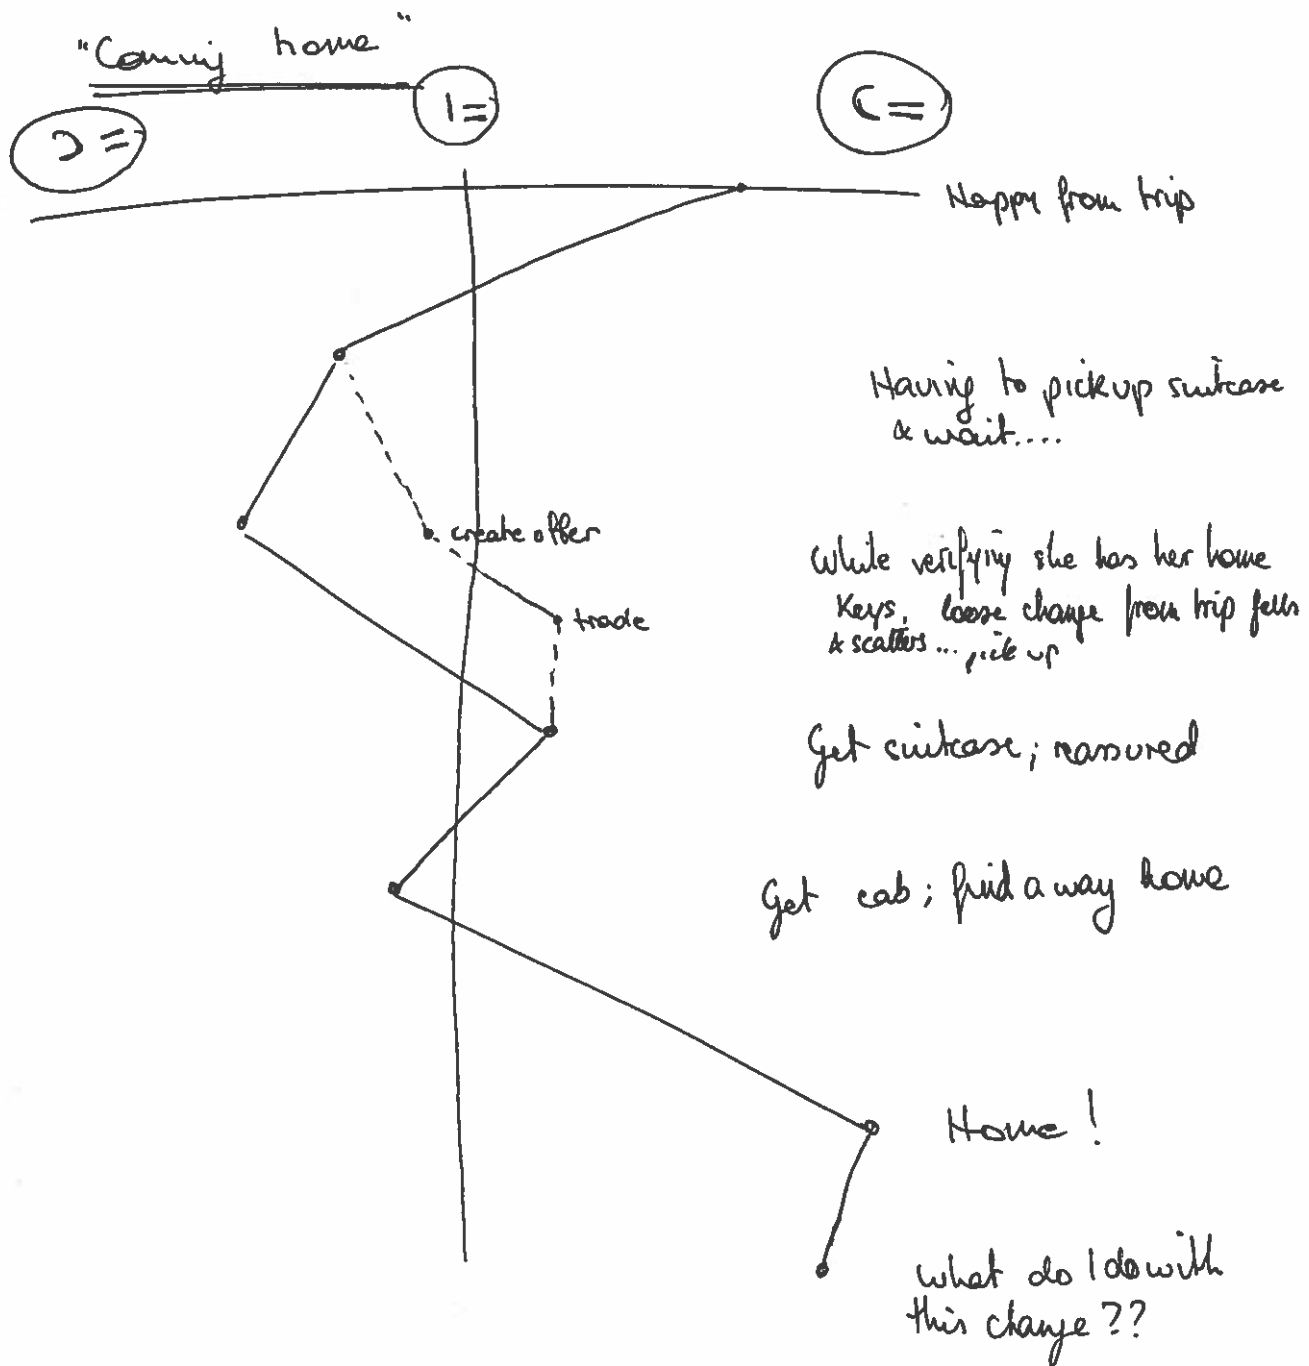 "Coming home"
Happy from trip
Having to pick up suitcase
& wait....
create offer
While verifying she has her home
trade
Keys, loose change from trip fells
& scatters... pick up
Get suitcase; reassured
Get cab; find a way home
Home!
What do I do with
this change??